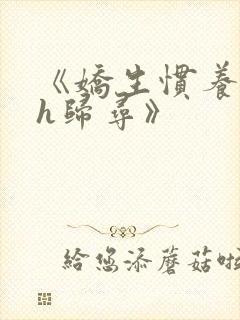 《嬌生慣養
h歸尋》
給您添蘑菇啦